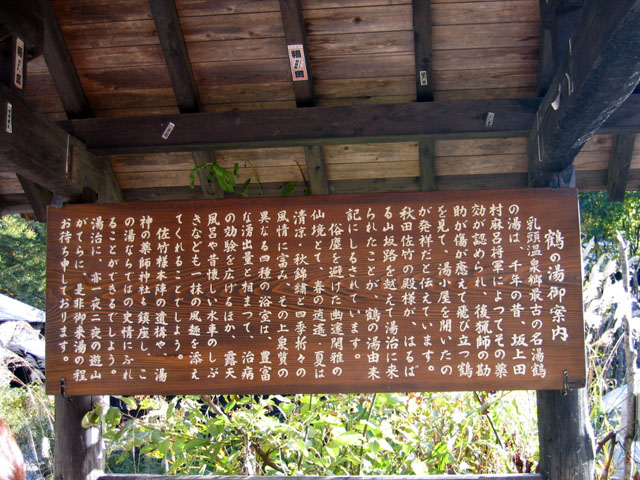 鶴の湯御案内
乳頭温泉郷最古の名湯鶴
の湯は、千年の昔、坂上田
村麻呂将軍によってその薬
効が認められ、後猟師の勘
助が傷が癒えて飛び立つ鶴
を見て、湯小屋を開いたの
が発祥だと伝えています。
秋田佐竹の殿様が、はるば
る山坂路を越えて湯治に来
られたことが、鶴の湯由来
記にしるされています。
俗塵を避けた幽邃閑雅の
仙境とて、春の逍遙・夏は
清凉・秋錦繍と四季折々の
風情に富み、その上泉質の
異なる四種の浴室は、豊富
な湧出量と相まって、治病
の効験を広げるほか、露天
風呂や昔懐しい水車のしぶ
きなども一抹の風趣を添え
てくれることでしょう。
佐竹様本陣の遺構や、湯
神の薬師神社も鎮座し、こ
の湯ならではの史情にふれ
ることができるでしょう。
湯治に、亦一夜二夜の遊山
がてらに、是非御来湯の程
お待ち申しております。